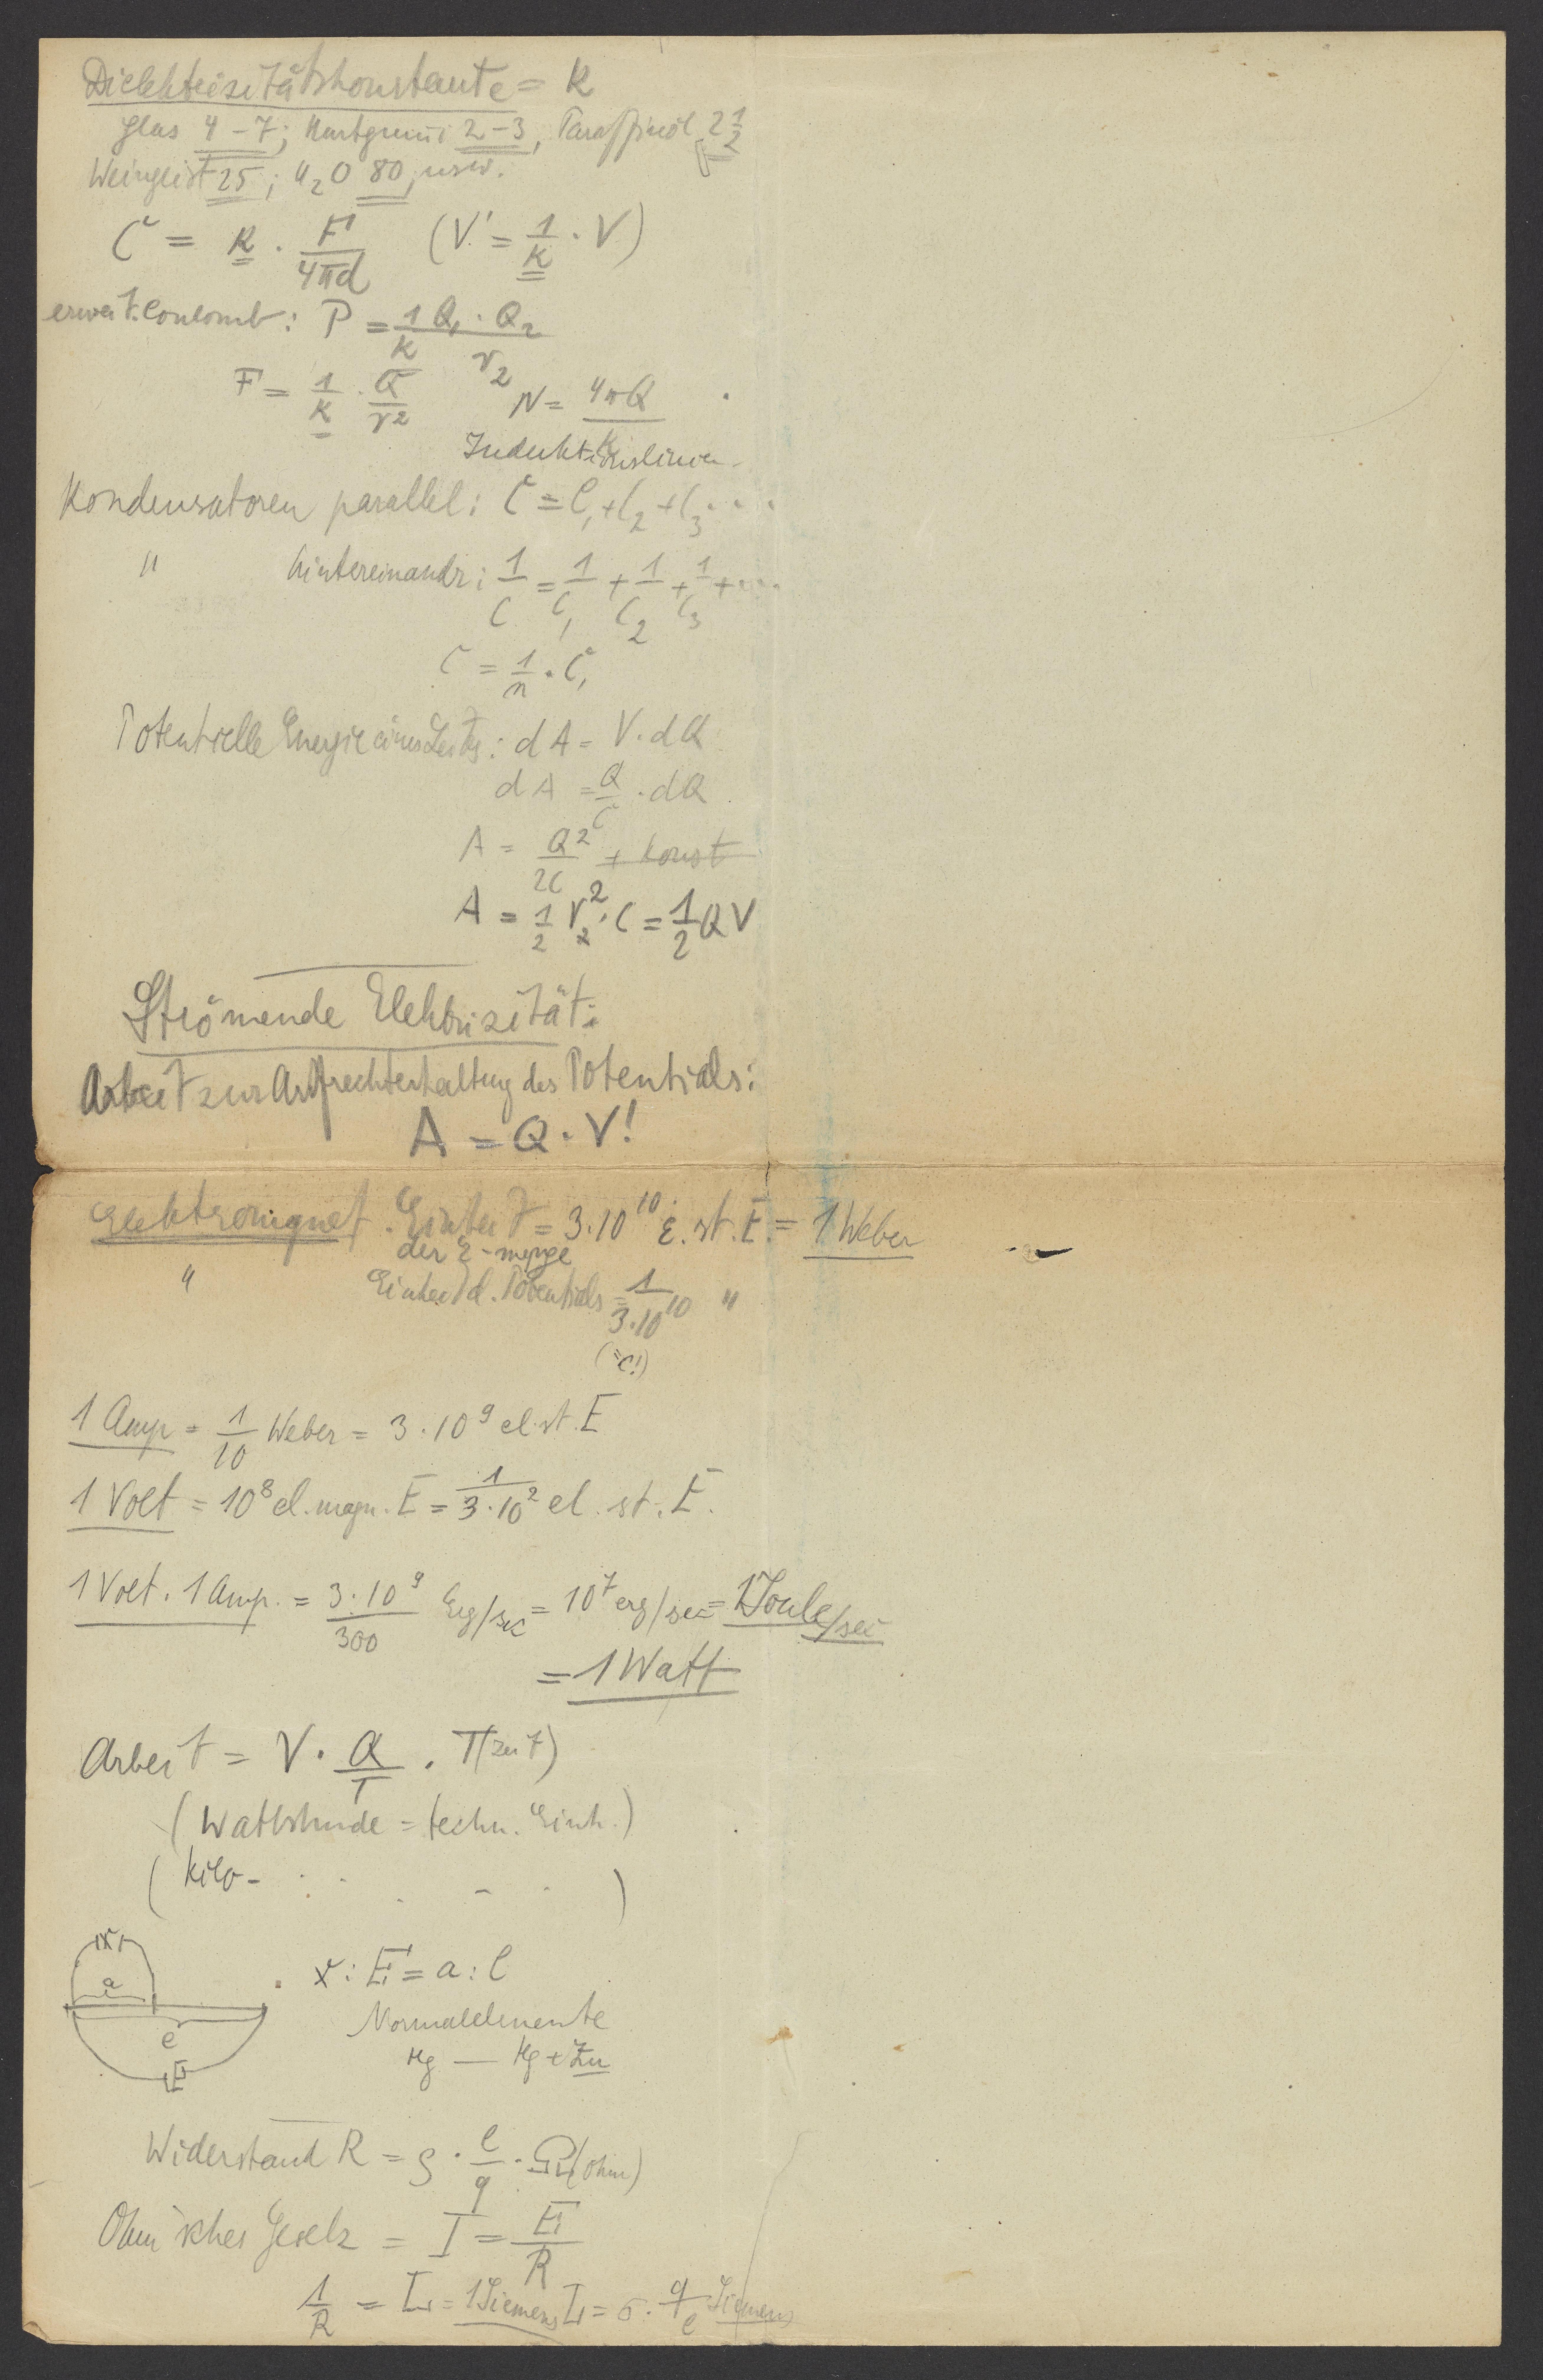 Dielektrizitätskonstante = K
Glas 4 – 7; Hartgummi 2 – 3, Paraffinöl 2 1/2
Weingeist 25; H2O 80, usw.
C = K · F/4πd (V' = 1/K · V)
erweit. Coulomb: P = 1/K Q1 · Q2/r2
F = 1/K · Q/r2 N = 4πQ/K
Induktionslinien
Kondensatoren parallel: C = C1 + C2 + C3 ...
" hintereinandr: 1/C = 1/C1 + 1/C2 + 1/C3 + ...
C = 1/n · C1
Potentielle Energie eines Leiters: dA = V · dQ
dA = Q/C · dQ
A = Q2/2C + Konst
A = 1/2 V2 · C = 1/2 QV
Strömende Elektrizität:
Arbeit zur Aufrechterhaltung des Potentials:
A = Q · V!
Elektromagnet. Einheit = 3·10^10 E. st. E. = 1 Weber
der E-menge
" Einheit d. Potentials = 1/3·10^10 "
(=c!)
1 Amp = 1/10 Weber = 3·10^9 el. st. E
1 Volt = 10^8 el. magn. E = 1/3·10^2 el. st. E.
1 Volt · 1 Amp. = 3·10^9/300 Erg/sec = 10^7 erg/sec = 1 Joule/sec
= 1 Watt
Arbeit = V · Q/T · T (Zeit)
(Wattstunde = techn. Einh.)
(Kilo- )
x
a
x : E = a : l
l
Normalelemente
E
Hg — Hg + Zn
Widerstand R = ρ · l/q · Ω (Ohm)
Ohm'sches Gesetz = I = E/R
1/R = L = 1 Siemens L = σ · q/l Siemens